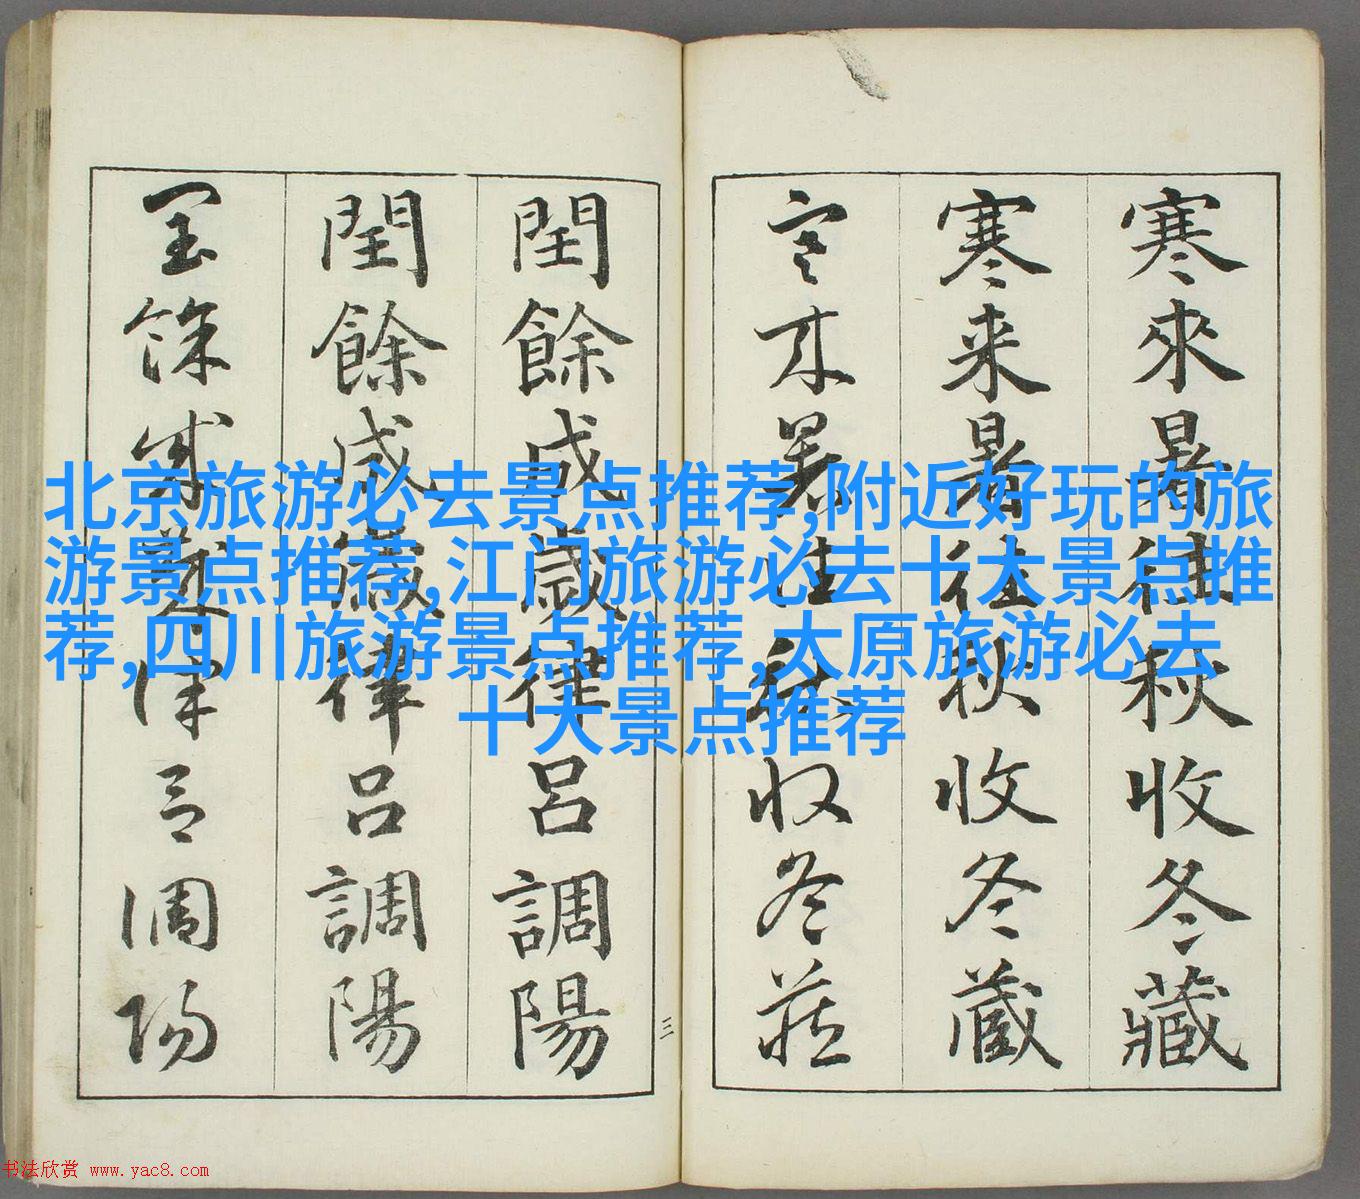 寒來暑往秋收冬藏
寒来暑往秋收冬蔵
寒来暑往秋收冬藏
閏餘成歲律呂調陽
閏餘成歲律呂調陽
閏餘成歲律呂調陽
三
北京旅游必去景点推荐,附近好玩的旅
游景点推荐,江门旅游必去十大景点推
荐,四川旅游景点推荐,太原旅游必去
十大景点推荐
书法欣赏 www.yac8.com